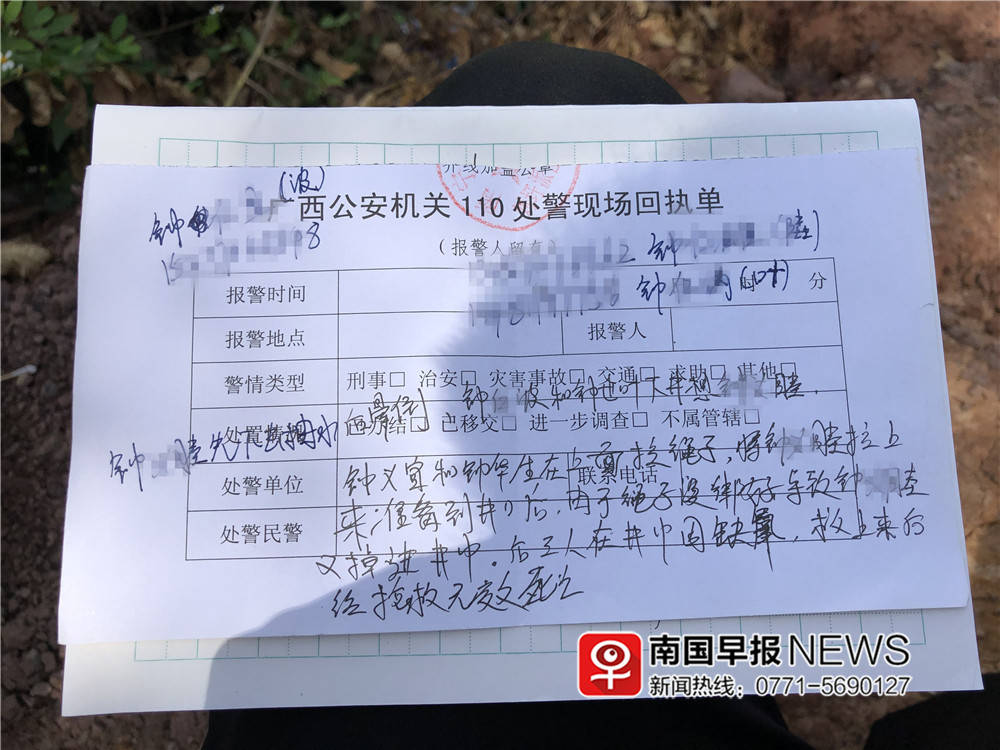 外线加盖公章
(波)
广西公安机关 110 处警现场回执单
钟
8
(报警人留存)
钟 陆)
15
钟 (叶)
报警时间 时 分
报警地点 报警人
警情类型 刑事□ 治安□ 灾害事故□ 交通□ 求助□ 其他□
钟 波和钟世叶下井想 陆.
处置情况 已办结□ 已移交□ 进一步调查□ 不属管辖□
钟 陆先下去抽水 晕倒
处警单位 联系电话
钟义宜和钟华生在上面拉绳子,将钟 陆拉上
处警民警
来准备到井口后,由于绳子没绑好导致钟 陆
又掉进井中.后三人在井中因缺氧,救上来后
经抢救无效死亡
南国早报 NEWS
新闻热线:0771-5690127